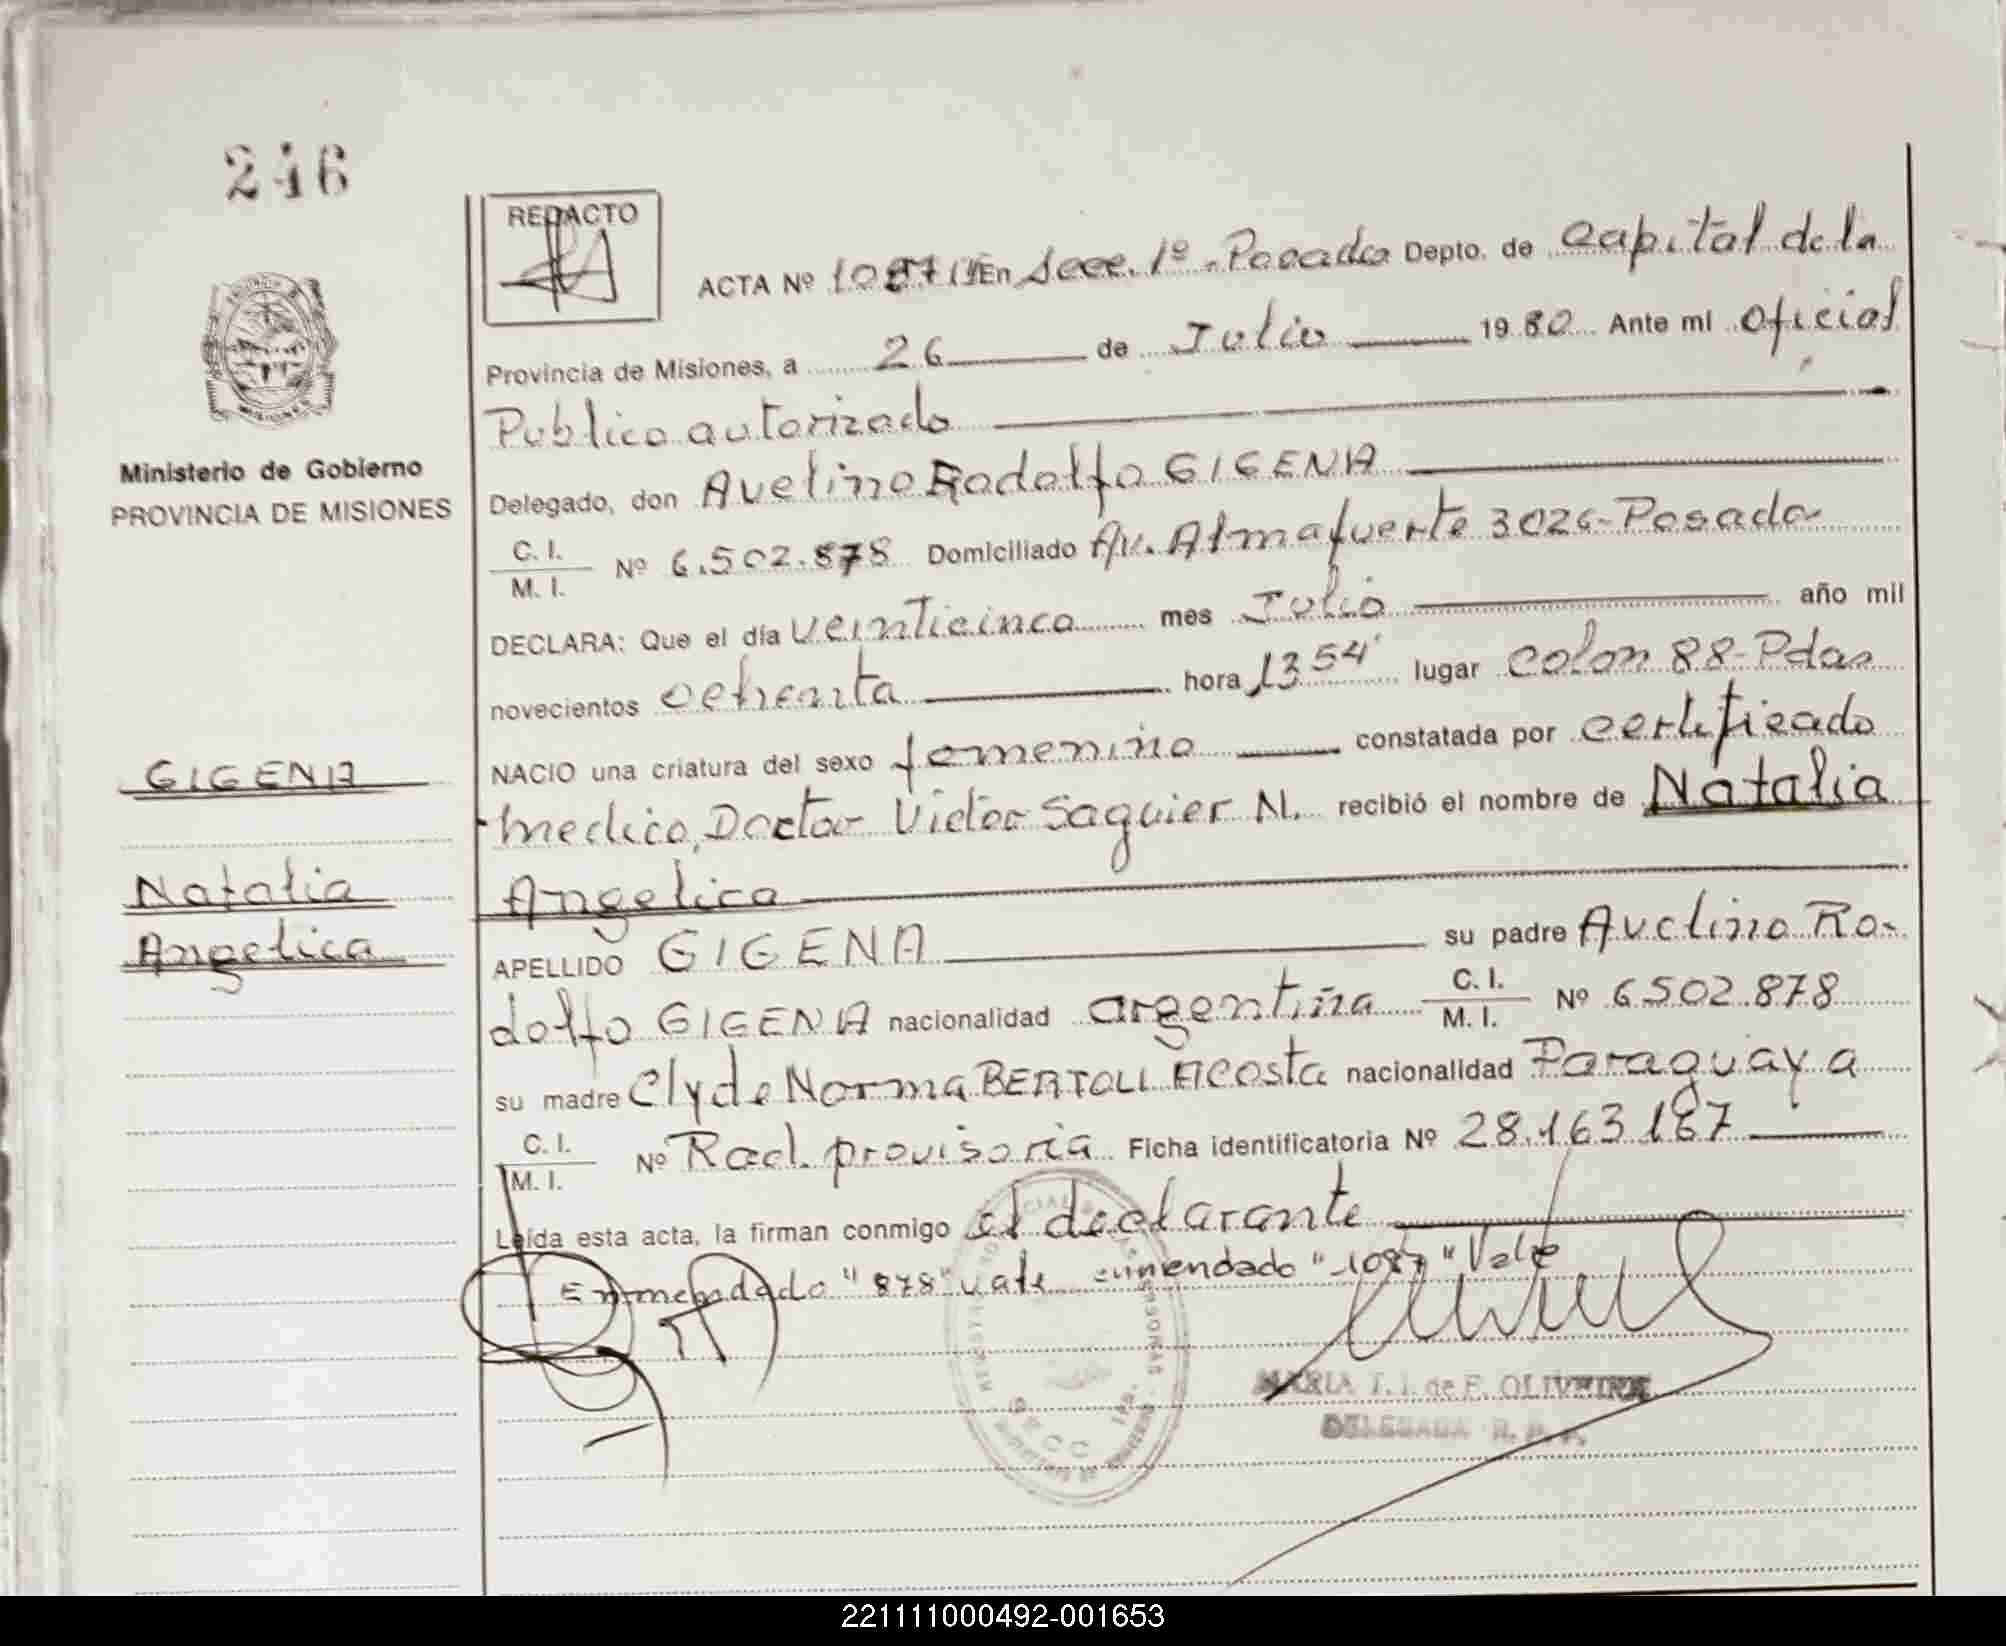 246
REDACTO
ACTA Nº 1087 En Secc. 1º - Posadas Depto. de Capital de la
Provincia de Misiones, a 26 de Julio 1980 Ante mí Oficial
Publico autorizado
Delegado, don Avelino Rodolfo GIGENA
C. I.
M. I. Nº 6.502.878 Domiciliado Av. Almafuerte 3026 - Posadas
DECLARA: Que el día veinticinco mes Julio año mil
novecientos ochenta hora 13 54' lugar Colon 88 - Pdas
NACIO una criatura del sexo femenino constatada por certificado
medico, Doctor Victor Saguier N. recibió el nombre de Natalia
Angelica
APELLIDO GIGENA su padre Avelino Ro-
dolfo GIGENA nacionalidad argentina C. I. M. I. Nº 6.502.878
su madre Clyde Norma BERTOLI Acosta nacionalidad Paraguaya
C. I.
M. I. Nº Rad. provisoria Ficha identificatoria Nº 28.163.187
Leída esta acta, la firman conmigo el declarante
Enmendado "878" vale enmendado "1087" Vale
MARIA T. I. de F. OLIVEIRA
DELEGADA R. P. P.
Ministerio de Gobierno
PROVINCIA DE MISIONES
GIGENA
Natalia
Angelica
221111000492-001653